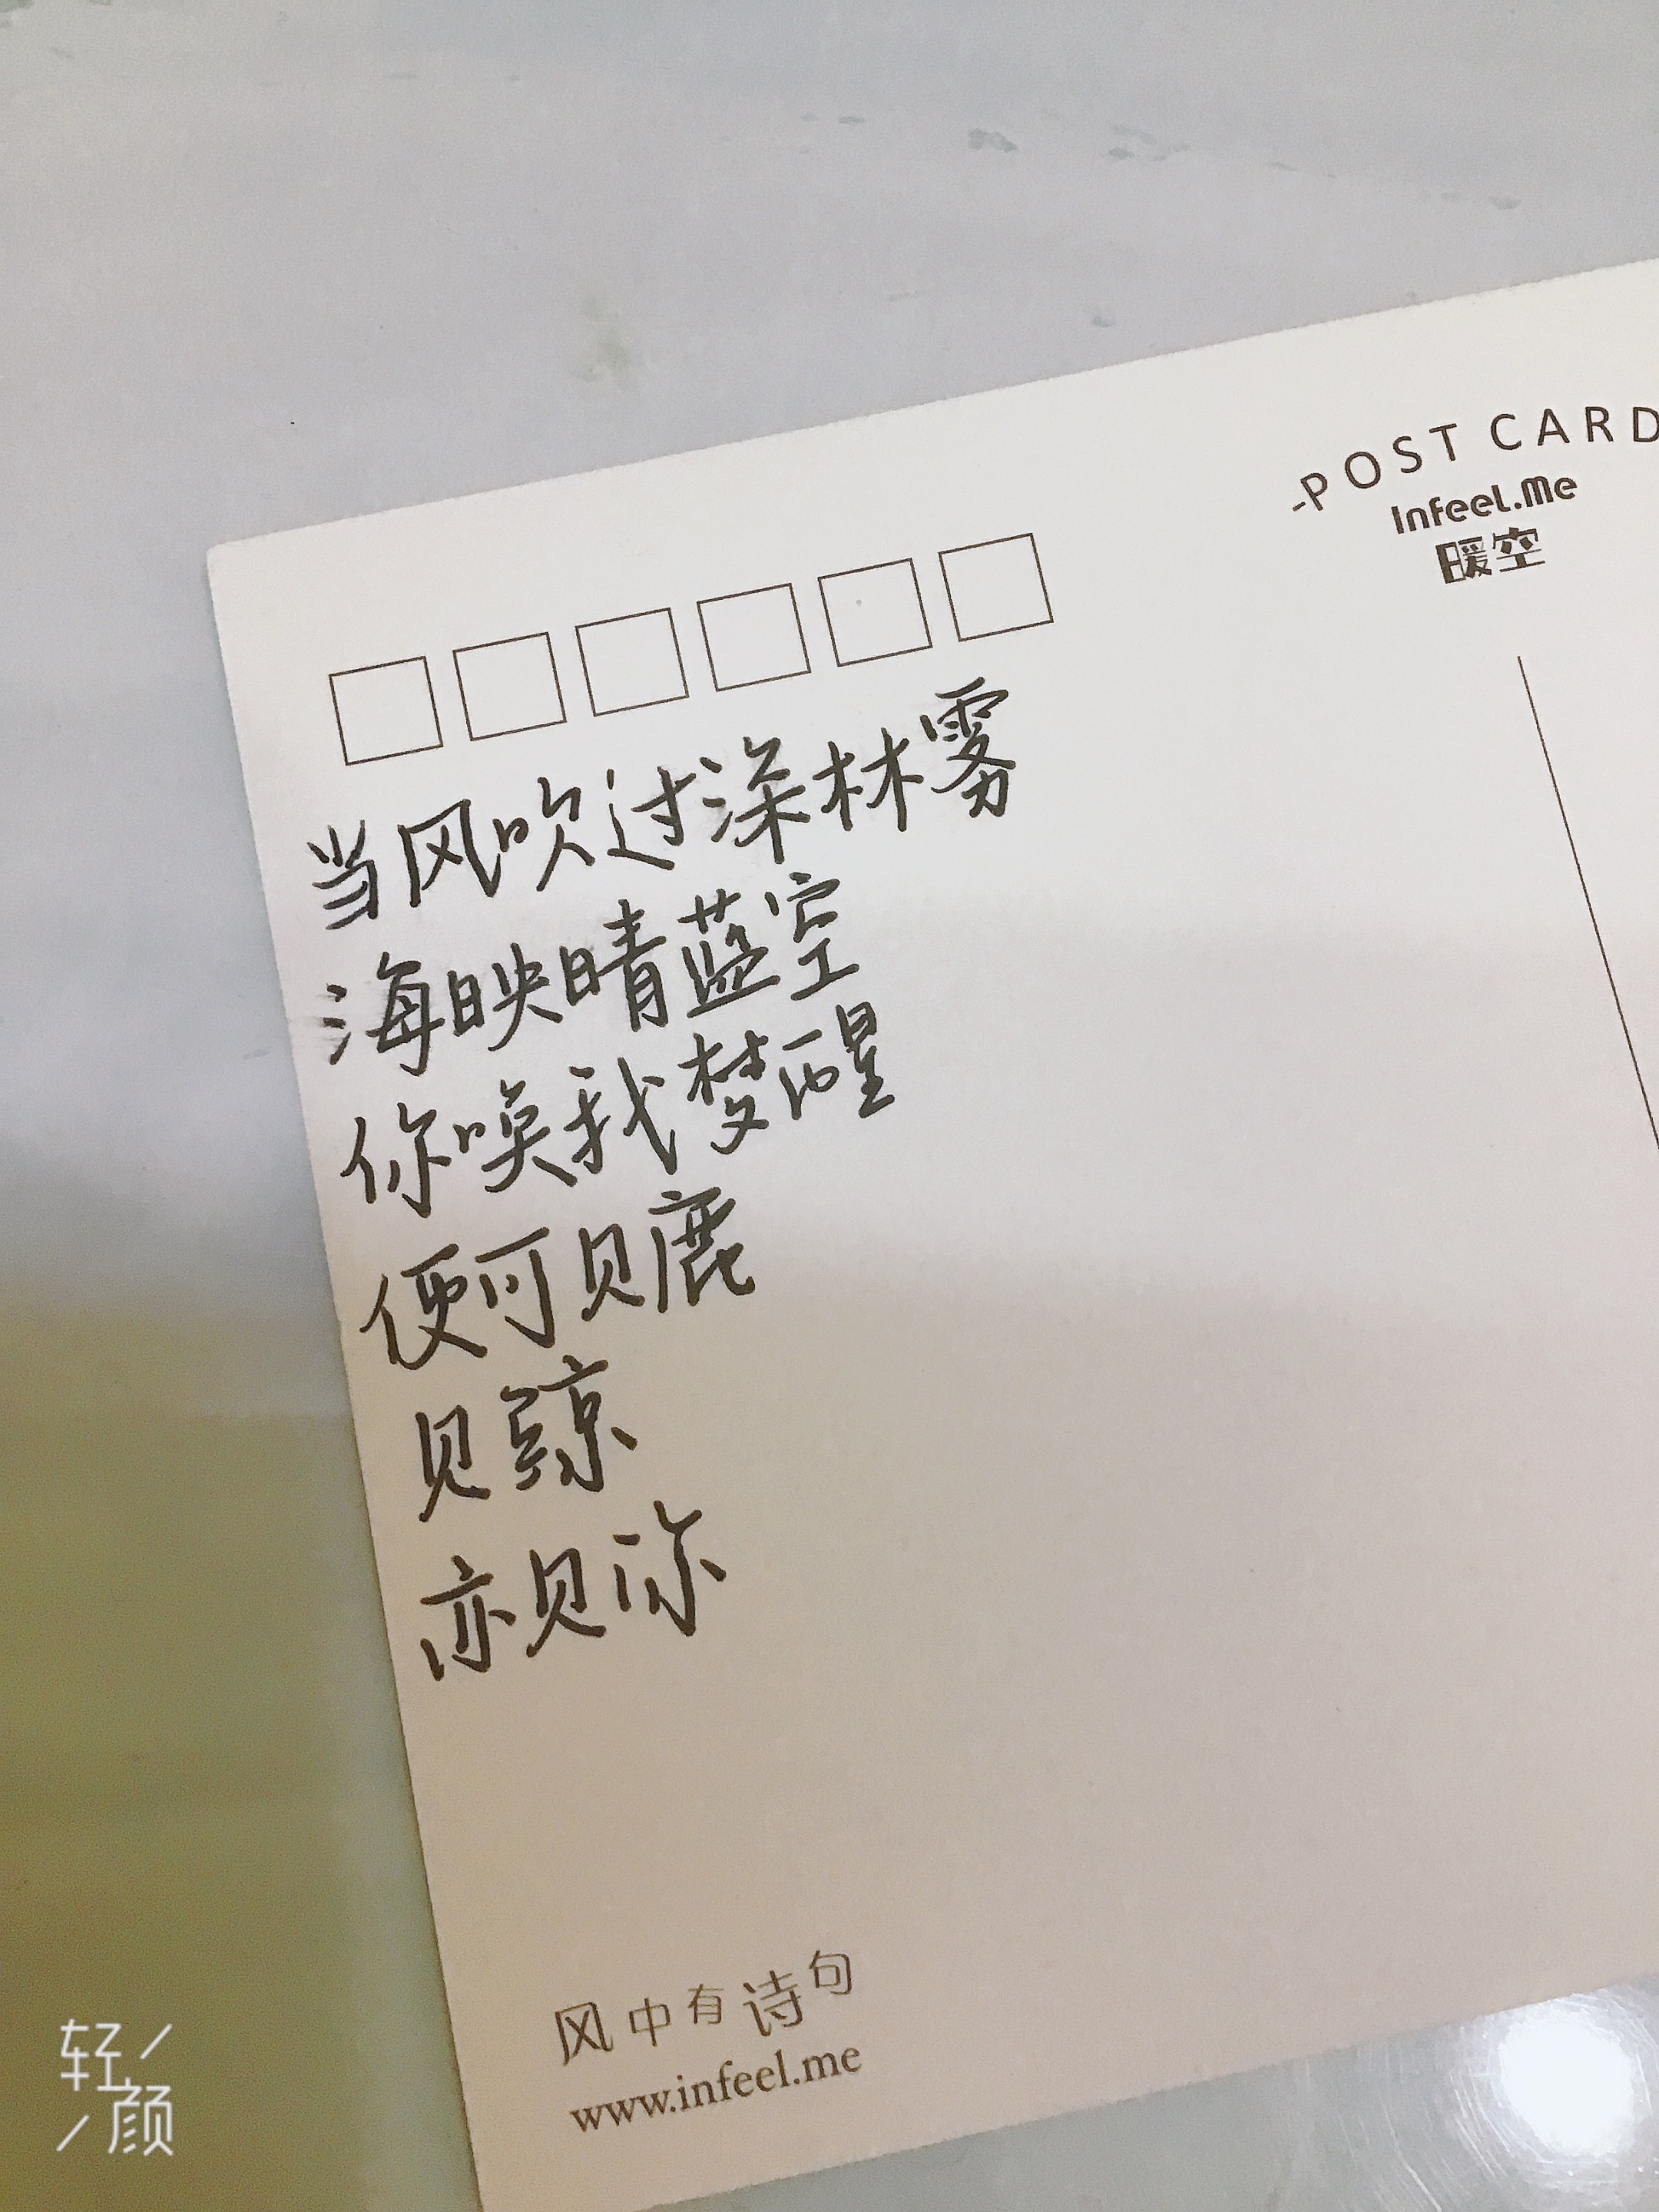 -POST CARD
Infeel.Me
暖空
当风吹过深林雾
海映晴蓝空
你唤我梦醒
便可见鹿
见鲸
亦见你
风中有诗句
www.infeel.me
轻颜